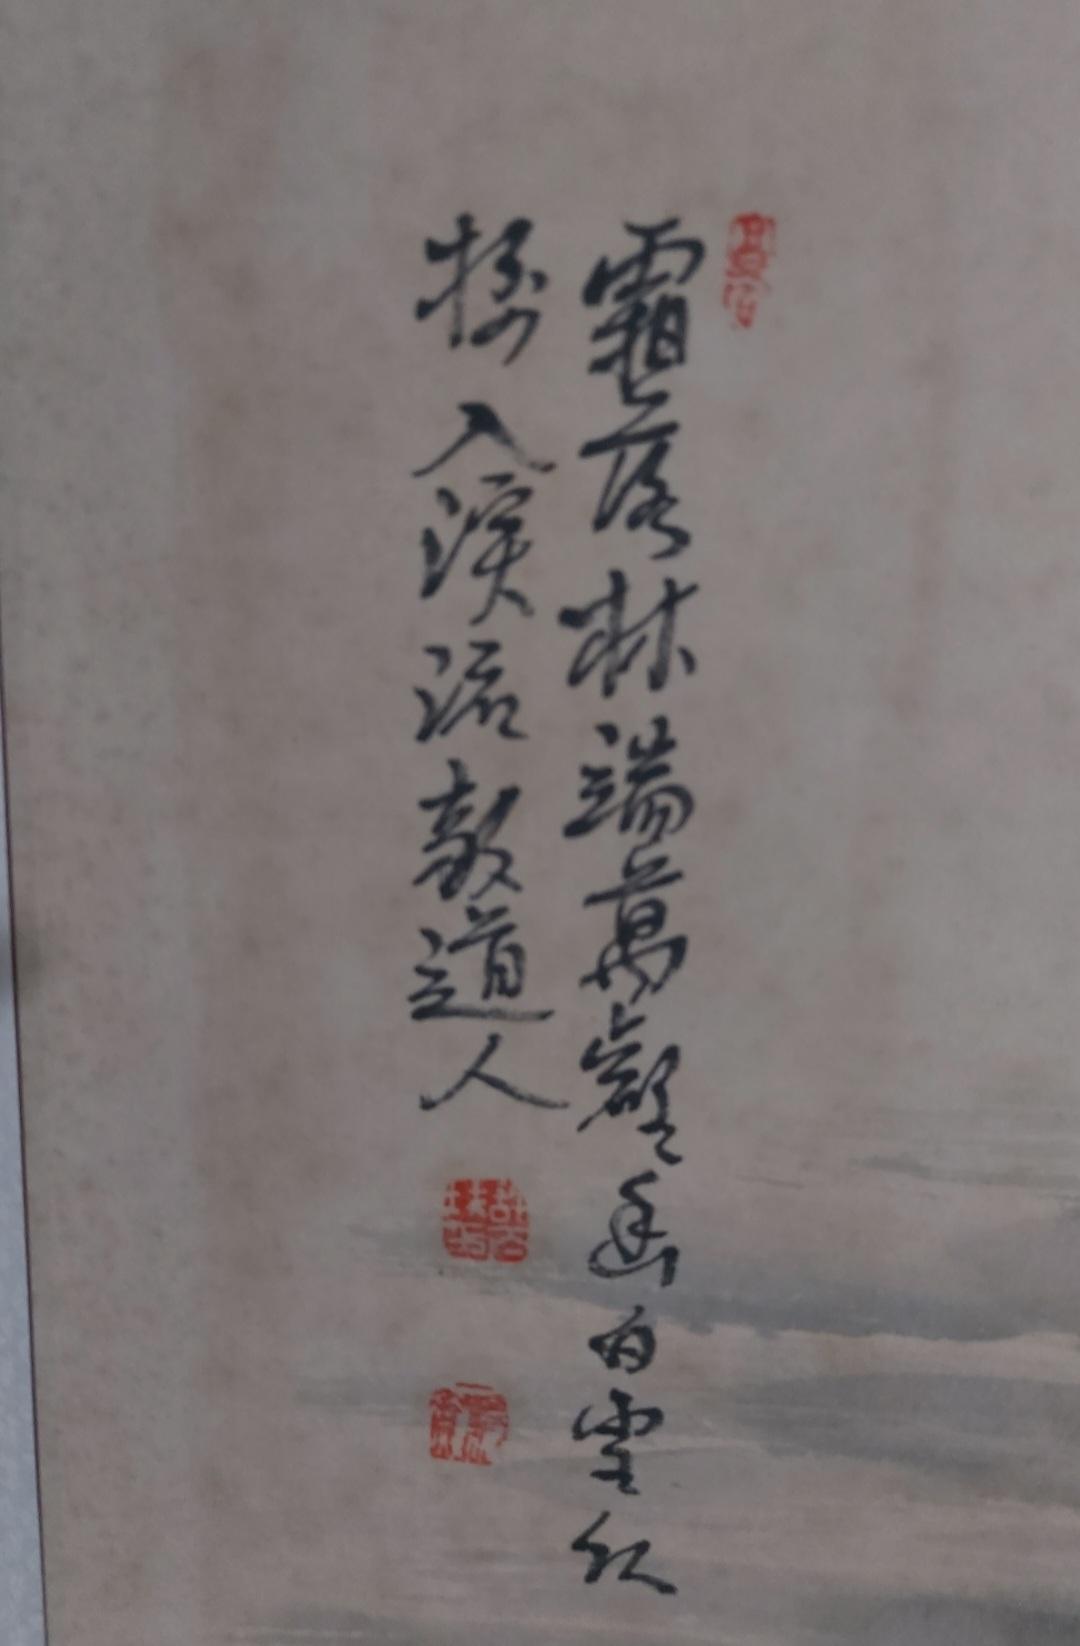 霜落林端萬壑幽白雲紅
樹入溪流散道人